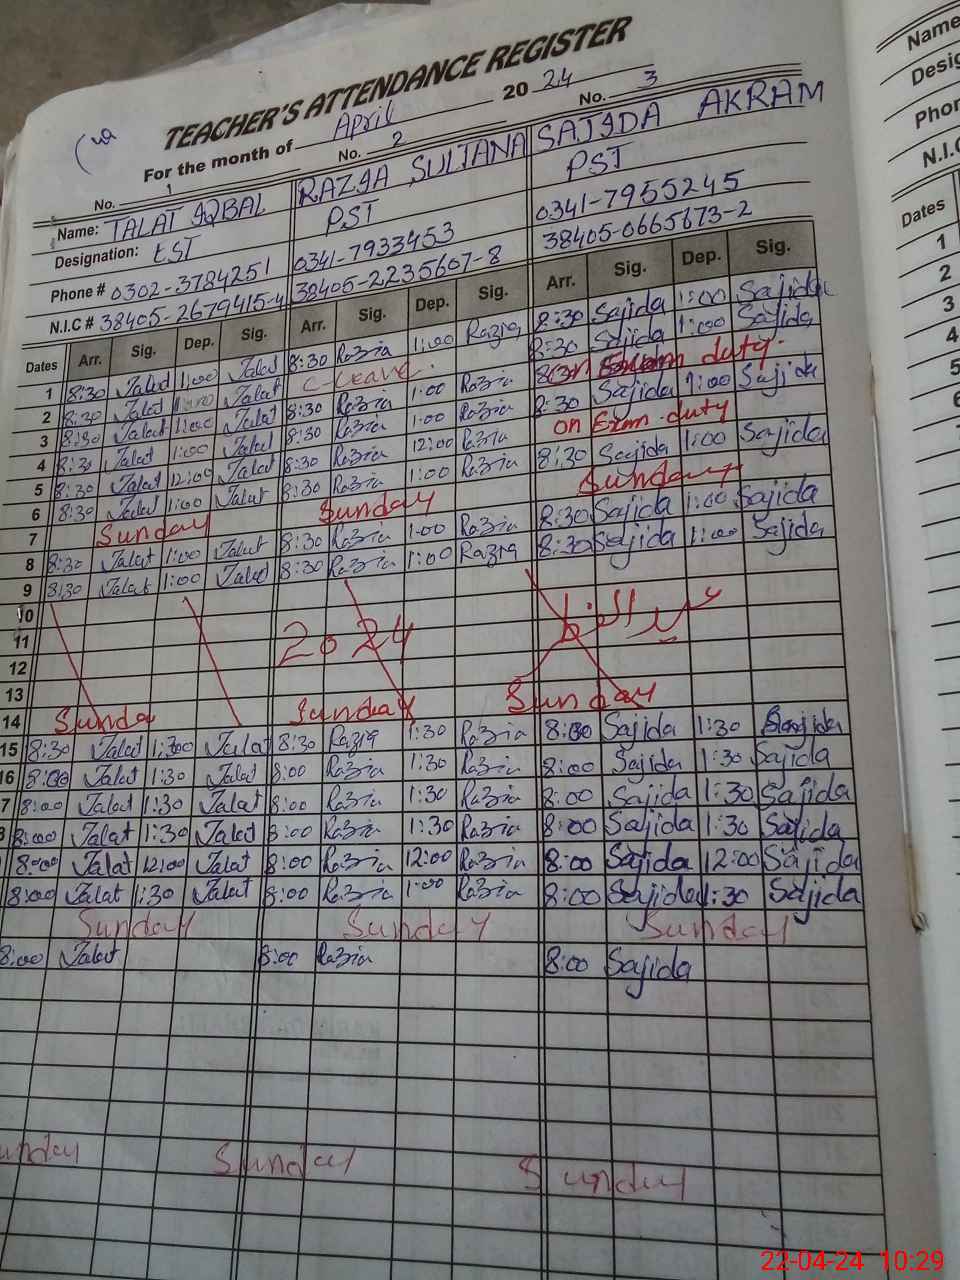 TEACHER'S ATTENDANCE REGISTER
For the month of April 2024
No. 1 No. 2 No. 3
Name: TALAT IQBAL RAZIA SULTANA SAJIDA AKRAM
Designation: EST PST PST
Phone # 0302-3784251 0341-7933453 0341-7955245
N.I.C # 38405-2679415-4 38405-2235607-8 38405-0665673-2
Dates Arr. Sig. Dep. Sig. Arr. Sig. Dep. Sig. Arr. Sig. Dep. Sig.
1 8:30 Talat 1:00 Talat 8:30 Razia 1:00 Razia 8:30 Sajida 1:00 Sajida
2 8:30 Talat 1:00 Talat C-Leave. 8:30 Sajida 1:00 Sajida
3 8:30 Talat 1:00 Talat 8:30 Razia 1:00 Razia on Exam duty.
4 8:30 Talat 1:00 Talat 8:30 Razia 1:00 Razia 8:30 Sajida 1:00 Sajida
5 8:30 Talat 12:00 Talat 8:30 Razia 12:00 Razia on Exam duty
6 8:30 Talat 1:00 Talat 8:30 Razia 1:00 Razia 8:30 Sajida 1:00 Sajida
7 Sunday Sunday Sunday
8 8:30 Talat 1:00 Talat 8:30 Razia 1:00 Razia 8:30 Sajida 1:00 Sajida
9 8:30 Talat 1:00 Talat 8:30 Razia 1:00 Razia 8:30 Sajida 1:00 Sajida
10
11 2024 عید الفطر
12
13
14 Sunda Sunday Sunday
15 8:30 Talat 1:30 Talat 8:30 Razia 1:30 Razia 8:00 Sajida 1:30 Sajida
16 8:00 Talat 1:30 Talat 8:00 Razia 1:30 Razia 8:00 Sajida 1:30 Sajida
7 8:00 Talat 1:30 Talat 8:00 Razia 1:30 Razia 8:00 Sajida 1:30 Sajida
8:00 Talat 1:30 Talat 8:00 Razia 1:30 Razia 8:00 Sajida 1:30 Sajida
8:00 Talat 12:00 Talat 8:00 Razia 12:00 Razia 8:00 Sajida 12:00 Sajida
8:00 Talat 1:30 Talat 8:00 Razia 1:00 Razia 8:00 Sajida 1:30 Sajida
Sunday Sunday Sunday
8:00 Talat 8:00 Razia 8:00 Sajida
unday Sunday Sunday
Name
Desig
Phon
N.I.C
Dates
1
2
3
4
5
6
22-04-24 10:29